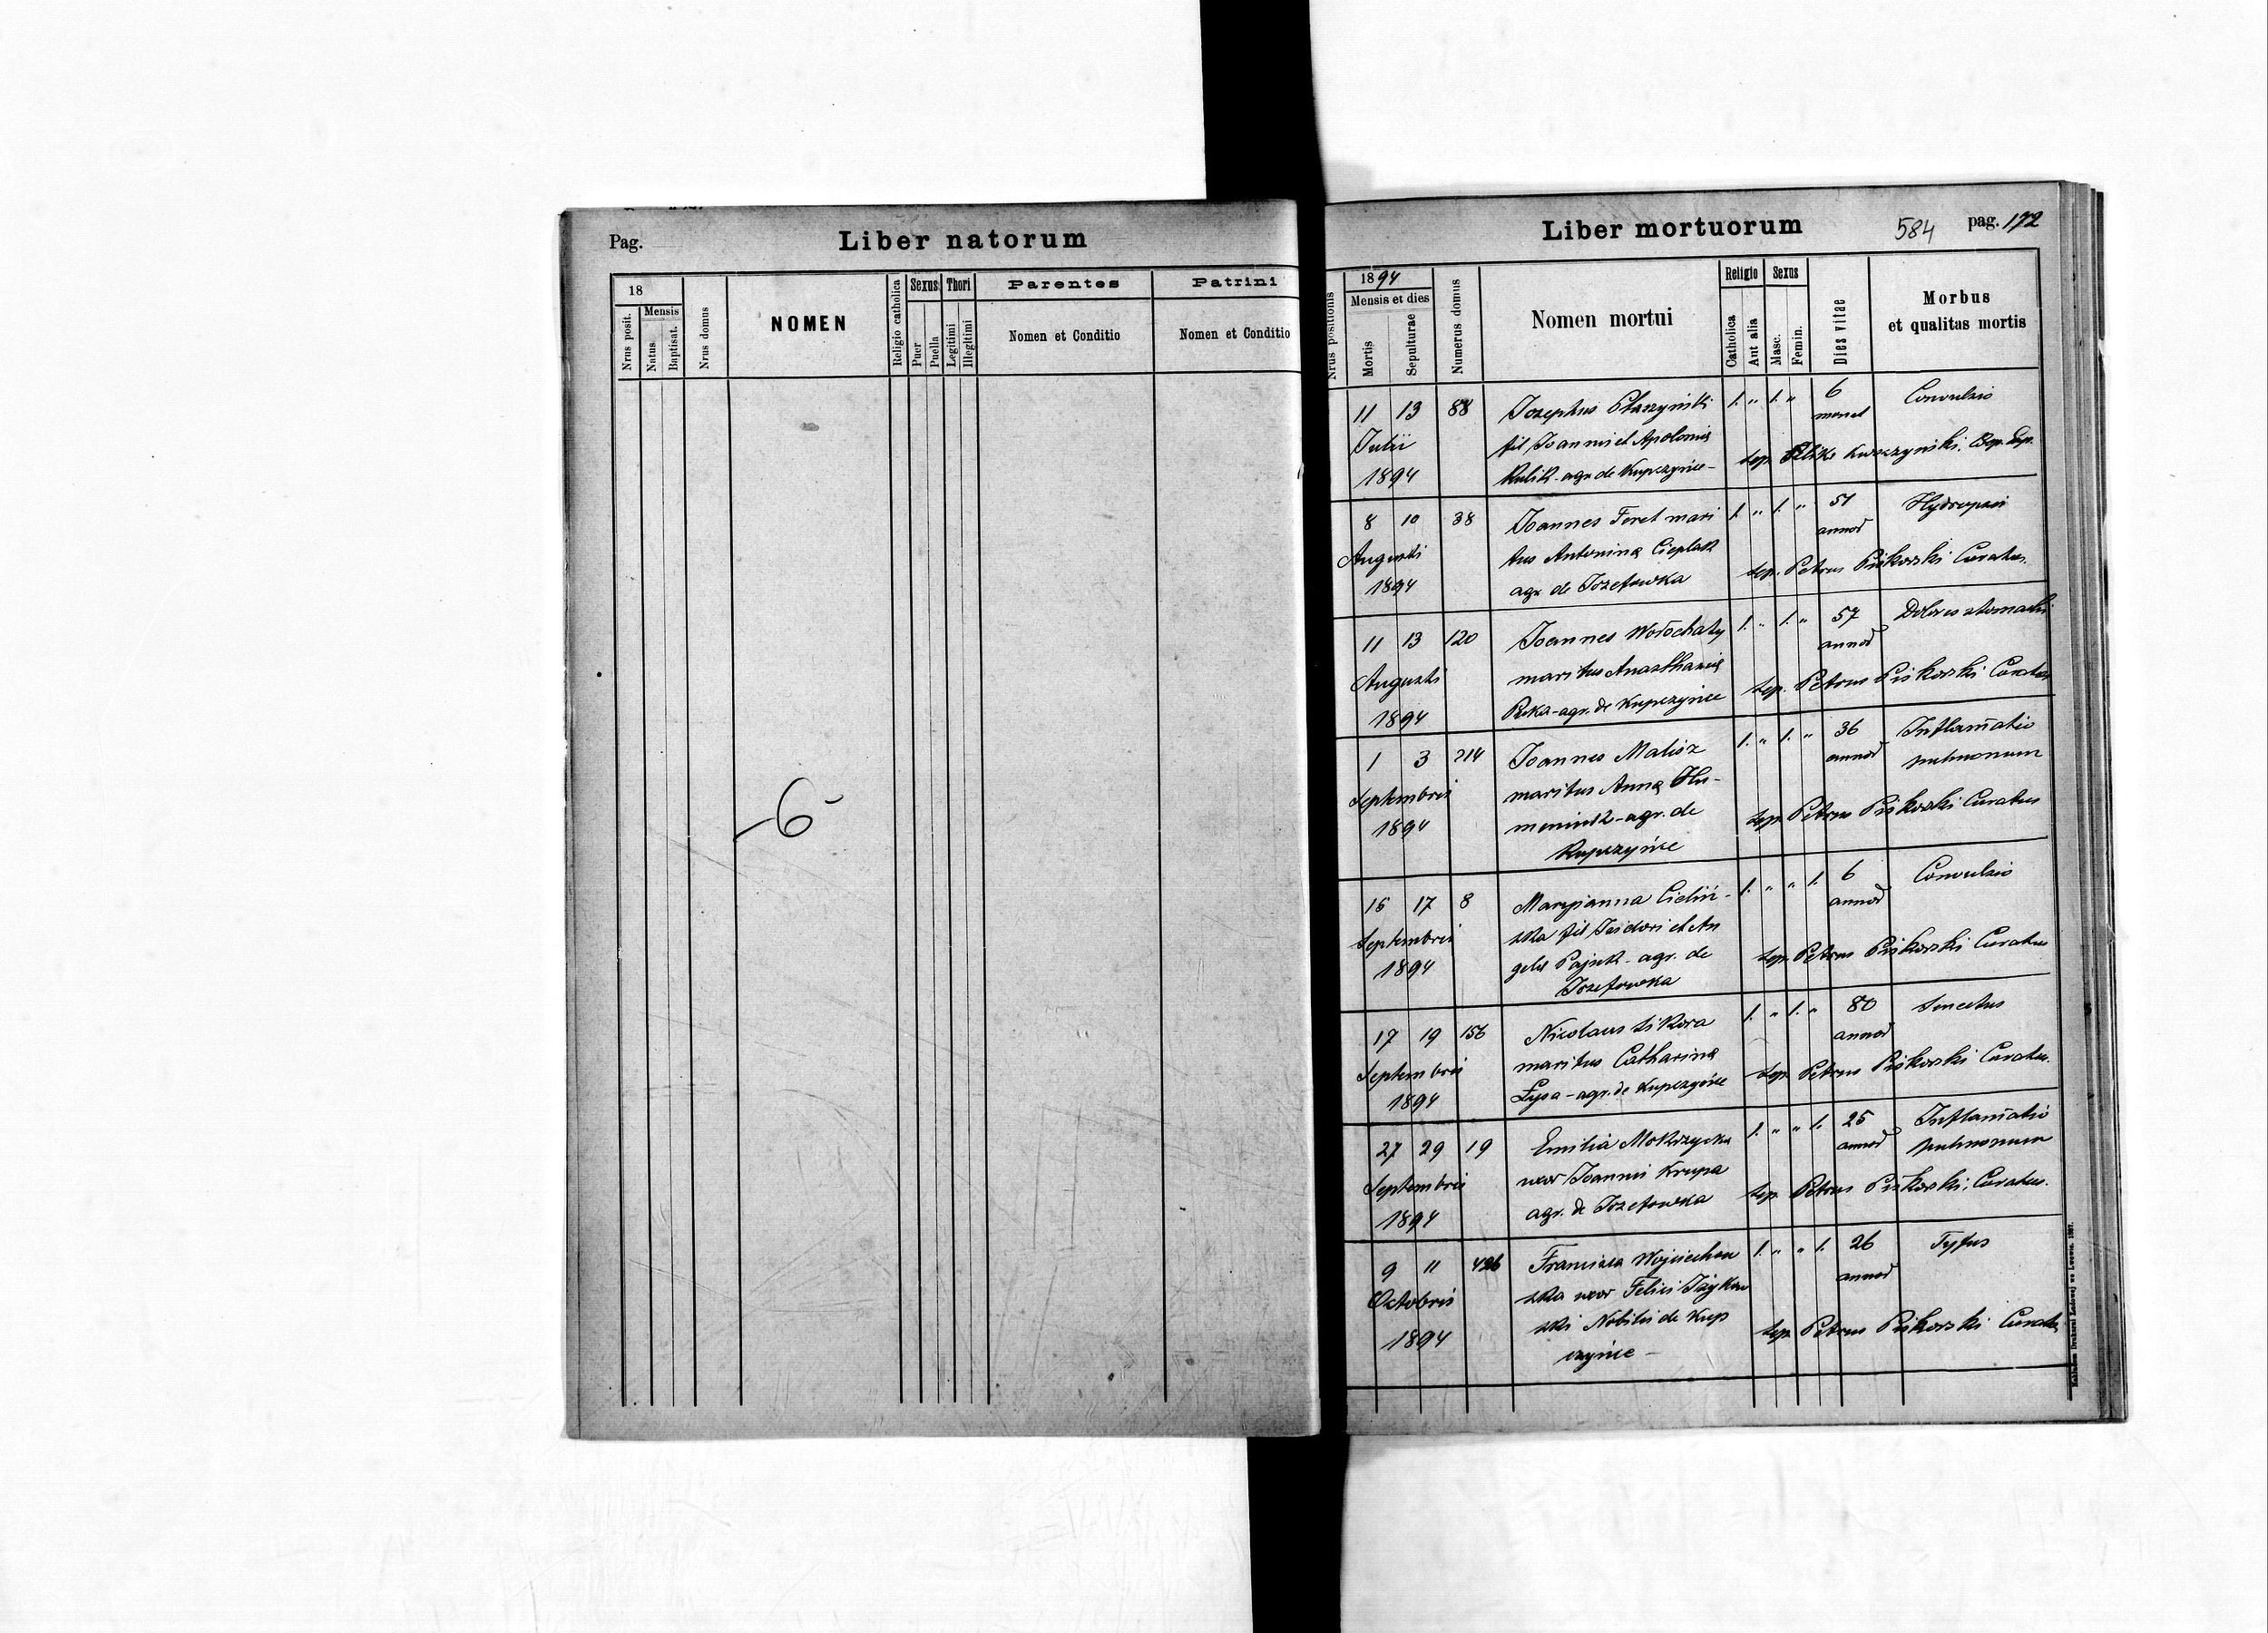 Pag.
Liber natorum
18
Nrus posit.
Mensis
Natus
Baptisat.
Nrus domus
NOMEN
Religio catholica
Sexus
Puer
Puella
Thori
Legitimi
Illegitimi
Parentes
Nomen et Conditio
Patrini
Nomen et Conditio
6
Liber mortuorum
584
pag. 172
Nrus positionis
1894
Mensis et dies
Mortis
Sepulturae
Numerus domus
Nomen mortui
Religio
Catholica
Aut alia
Sexus
Masc.
Femin.
Dies vitae
Morbus
et qualitas mortis
11 13 88 Josephus 1. " 1. " 6 Convulsio
Julii fil Joannis et Apolonia
1894 Kulik - agr. de Kupczyńce -
8 10 38 Joannes Feret mari 1. " 1. " 51 Hydropsis
annos
Augusti tus Antonina Cieplak sep. Petrus Piskorski Curatus.
1894 agr. de Jozefowka
11 13 120 Joannes Wołochaty 1. " 1. " 57 Dolores stomachi
annos
Augusti maritus sep. Petrus Piskorski Curatus
1894 agr. de Kupczyńce
1 3 214 Joannes Malisz 1. " 1. " 36 Inflam̄atio
annos pulmonum
Septembris maritus Anna
1894 agr. de sep. Petrus Piskorski Curatus
Kupczyńce
17 8 Maryianna Cieliń- 1. " " 1. 6 Convulsio
annos
Septembris ska fil Isidori et An
1894 gela Pajuk - agr. de sep. Petrus Piskorski Curatus
Jozefowka
17 19 156 Nicolaus Sikora 1. " 1. " 80 Senectus
annos
Septembris maritus Catharina sep. Petrus Piskorski Curatus.
1894 Łysa - agr. de Kupczyńce
27 29 19 Emilia Mokrzycka 1. " " 1. 25 Inflam̄atio
annos pulmonum
Septembris uxor Joannis Krupa sep. Petrus Piskorski, Curatus.
1894 agr. de Jozefowka
9 11 426 Francisca Wojciechow 1. " " 1. 26 Tyfus
annos
Octobris ska uxor Felici
1894 ski Nobilis de Kup sep. Petrus Piskorski Curatus
czyńce -
Nakładem Drukarni Ludowej we Lwowie. 1887.